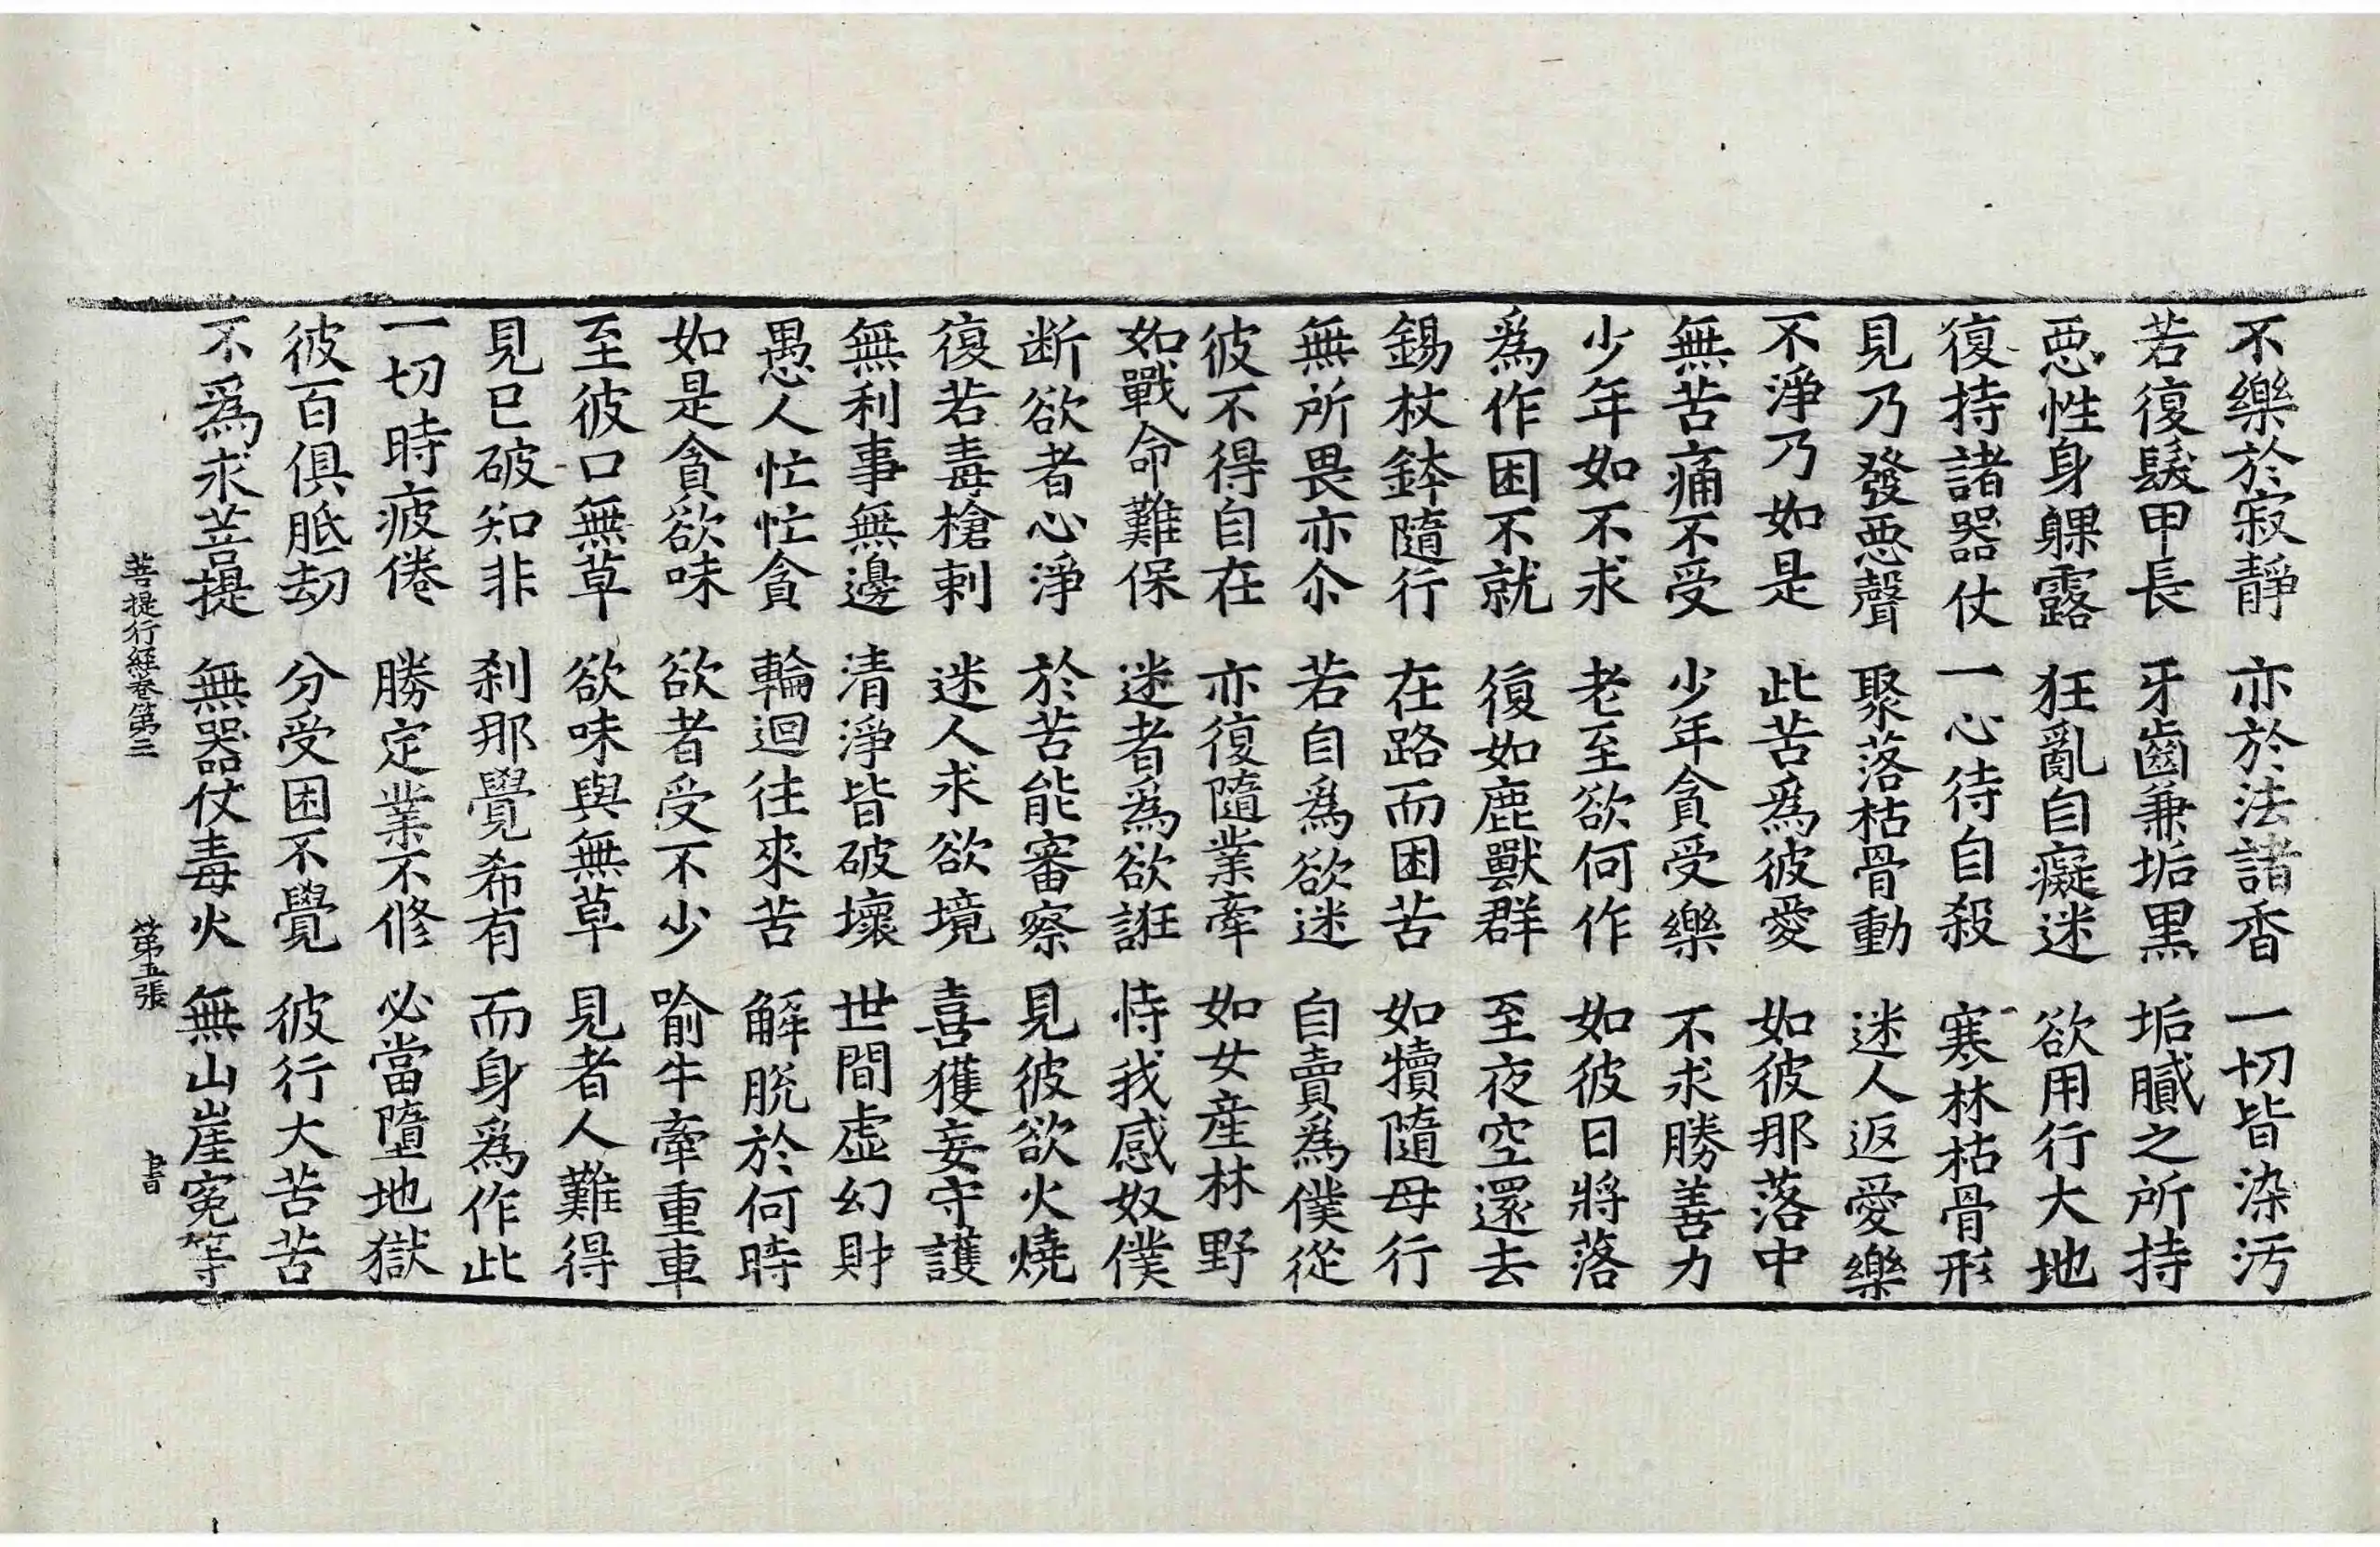 不樂於寂靜　亦於法諸香　一切皆染汚
若復髮甲長　牙齒兼垢黑　垢膩之所持
惡性身躶露　狂亂自癡迷　欲用行大地
復持諸器仗　一心待自殺　寒林枯骨形
見乃發惡聲　聚落枯骨動　迷人返愛樂
不淨乃如是　此苦爲彼愛　如彼那落中
無苦痛不受　少年貪受樂　不求勝善力
少年如不求　老至欲何作　如彼日將落
爲作困不就　復如鹿獸群　至夜空還去
錫杖鉢隨行　在路而困苦　如犢隨母行
無所畏亦尒　若自爲欲迷　自賣爲僕從
彼不得自在　亦復隨業牽　如女産林野
如戰命難保　迷者爲欲誑　恃我感奴僕
断欲者心淨　於苦能審察　見彼欲火燒
復若毒槍剌　迷人求欲境　喜獲妄守護
無利事無邊　清淨皆破壞　世間虛幻財
愚人忙忙貪　輪迴往來苦　解脫於何時
如是貪欲味　欲者受不少　喻牛牽重車
至彼口無草　欲味與無草　見者人難得
見已破知非　刹那覺希有　而身爲作此
一切時疲倦　勝定業不修　必當墮地獄
彼百俱胝劫　分受困不覺　彼行大苦苦
不爲求菩提　無器仗毒火　無山崖寃等
菩提行經卷第三　第五張　書